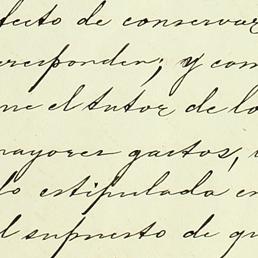 fecto de conservar
rresponden; y com
ne el tutor de lo
mayores gastos,
lo estipulada en
l supuesto de qu